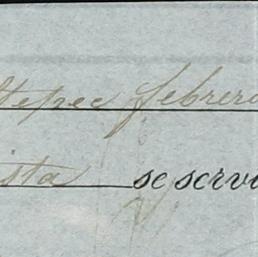 ltepec febrero
ista se servi